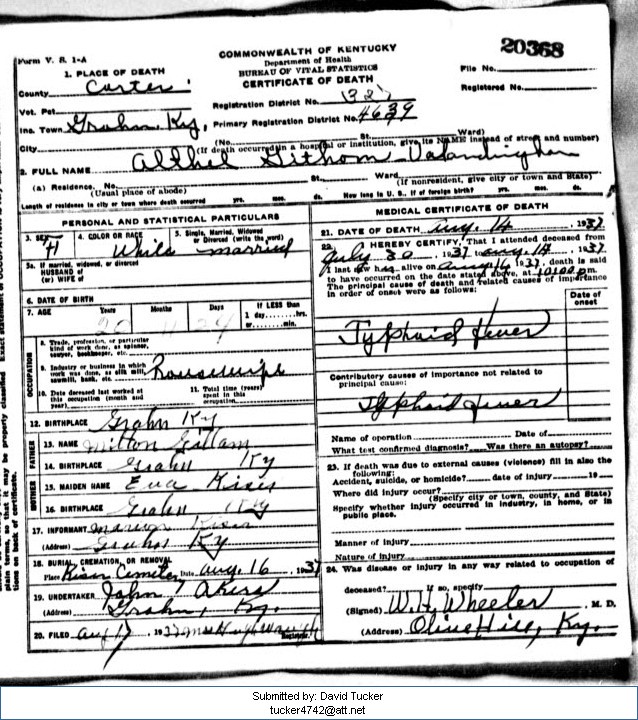 20368
Form V. S. 1-A
COMMONWEALTH OF KENTUCKY
Department of Health
BUREAU OF VITAL STATISTICS
CERTIFICATE OF DEATH
File No.
Registered No.
1. PLACE OF DEATH
County Carter
Registration District No.
Vot. Pct.
Inc. Town Grahn, Ky, Primary Registration District No. 4639
City (No. St. Ward)
(If death occurred in a hospital or institution, give its NAME instead of street and number)
2. FULL NAME
(a) Residence. No. St. Ward
(Usual place of abode) (If nonresident, give city or town and State)
Length of residence in city or town where death occurred yrs. mos. ds. How long in U. S., if of foreign birth? yrs. mos. ds.
PERSONAL AND STATISTICAL PARTICULARS
3. SEX 4. COLOR OR RACE 5. Single, Married, Widowed
or Divorced (write the word)
White married
5a. If married, widowed, or divorced
HUSBAND of
(or) WIFE of
6. DATE OF BIRTH
7. AGE Years Months Days If LESS than
1 day......hrs.
or......min.
20 11 24
OCCUPATION
8. Trade, profession, or particular
kind of work done, as spinner,
sawyer, bookkeeper, etc.
9. Industry or business in which
work was done, as silk mill,
sawmill, bank, etc. Housewife
10. Date deceased last worked at
this occupation (month and
year)
11. Total time (years)
spent in this
occupation
12. BIRTHPLACE Grahn Ky
FATHER
13. NAME Milton
14. BIRTHPLACE Grahn Ky
MOTHER
15. MAIDEN NAME Eva Kiser
16. BIRTHPLACE Grahn Ky
17. INFORMANT Kiser
(Address) Grahn Ky
18. BURIAL, CREMATION, OR REMOVAL
Place Kiser Cemetery Date aug. 16, 1937
19. UNDERTAKER John Akers
(Address) Grahn, Ky.
20. FILED aug 17, 1937 Registrar
MEDICAL CERTIFICATE OF DEATH
21. DATE OF DEATH aug. 14, 1937
22. I HEREBY CERTIFY, That I attended deceased from
July 30, 1937 aug. 14, 1937
I last saw h alive on 1937, death is said
to have occurred on the date stated above, at 10:00 p.m.
The principal cause of death and related causes of importance
in order of onset were as follows:
Date of
onset
Typhoid fever
Contributory causes of importance not related to
principal cause:
Typhoid fever
Name of operation Date of
What test confirmed diagnosis? Was there an autopsy?
23. If death was due to external causes (violence) fill in also the
following:
Accident, suicide, or homicide? date of injury 19
Where did injury occur?
(Specify city or town, county, and State)
Specify whether injury occurred in industry, in home, or in
public place.
Manner of injury
Nature of injury
24. Was disease or injury in any way related to occupation of
deceased? If so, specify
(Signed) W. H. Wheeler, M. D.
(Address) Olive Hill, Ky.
plain terms, so that it may be properly classified
tions on back of certificate.
Submitted by: David Tucker
tucker4742@att.net